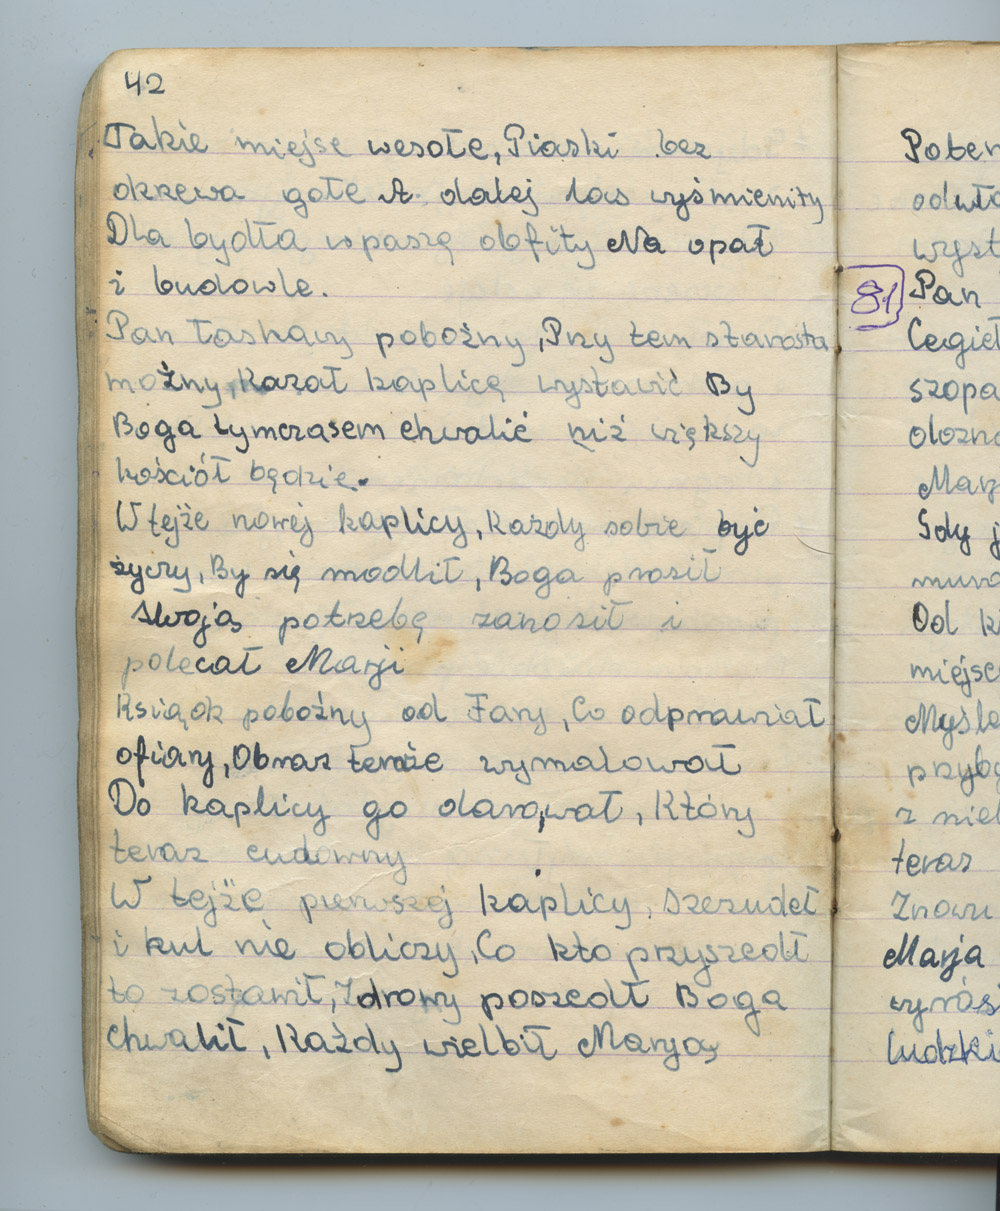 42
Takie miejsc wesołe, Piaski bez
drzewa gołe A dalej las wyśmienity
Dla bydła w paszę obfity Na opał
i budowle.
Pan łaskawy pobożny, Przy tem starosta
możny, Kazał kaplicę wystawić By
Boga tymczasem chwalić niż większy
kościół będzie.
W tejże nowej kaplicy, Każdy sobie być
życzy, By się modlił, Boga prosił
Swoją potrzebę zanosił i
polecał Marji
Ksiądz pobożny od Fary, Co odprawiał
ofiary, Obraz tenże wymalował
Do kaplicy go darował, Który
teraz cudowny
W tejże pierwszej kaplicy, Szczudeł
i kul nie obliczy, Co kto przyszedł
to zostawił, Zdrowy poszedł Boga
chwalił, Każdy wielbił Maryą
81
Pan
Cegieł
szopa
Gdy j
Od k
miejsc
teraz
Znowu
Marja